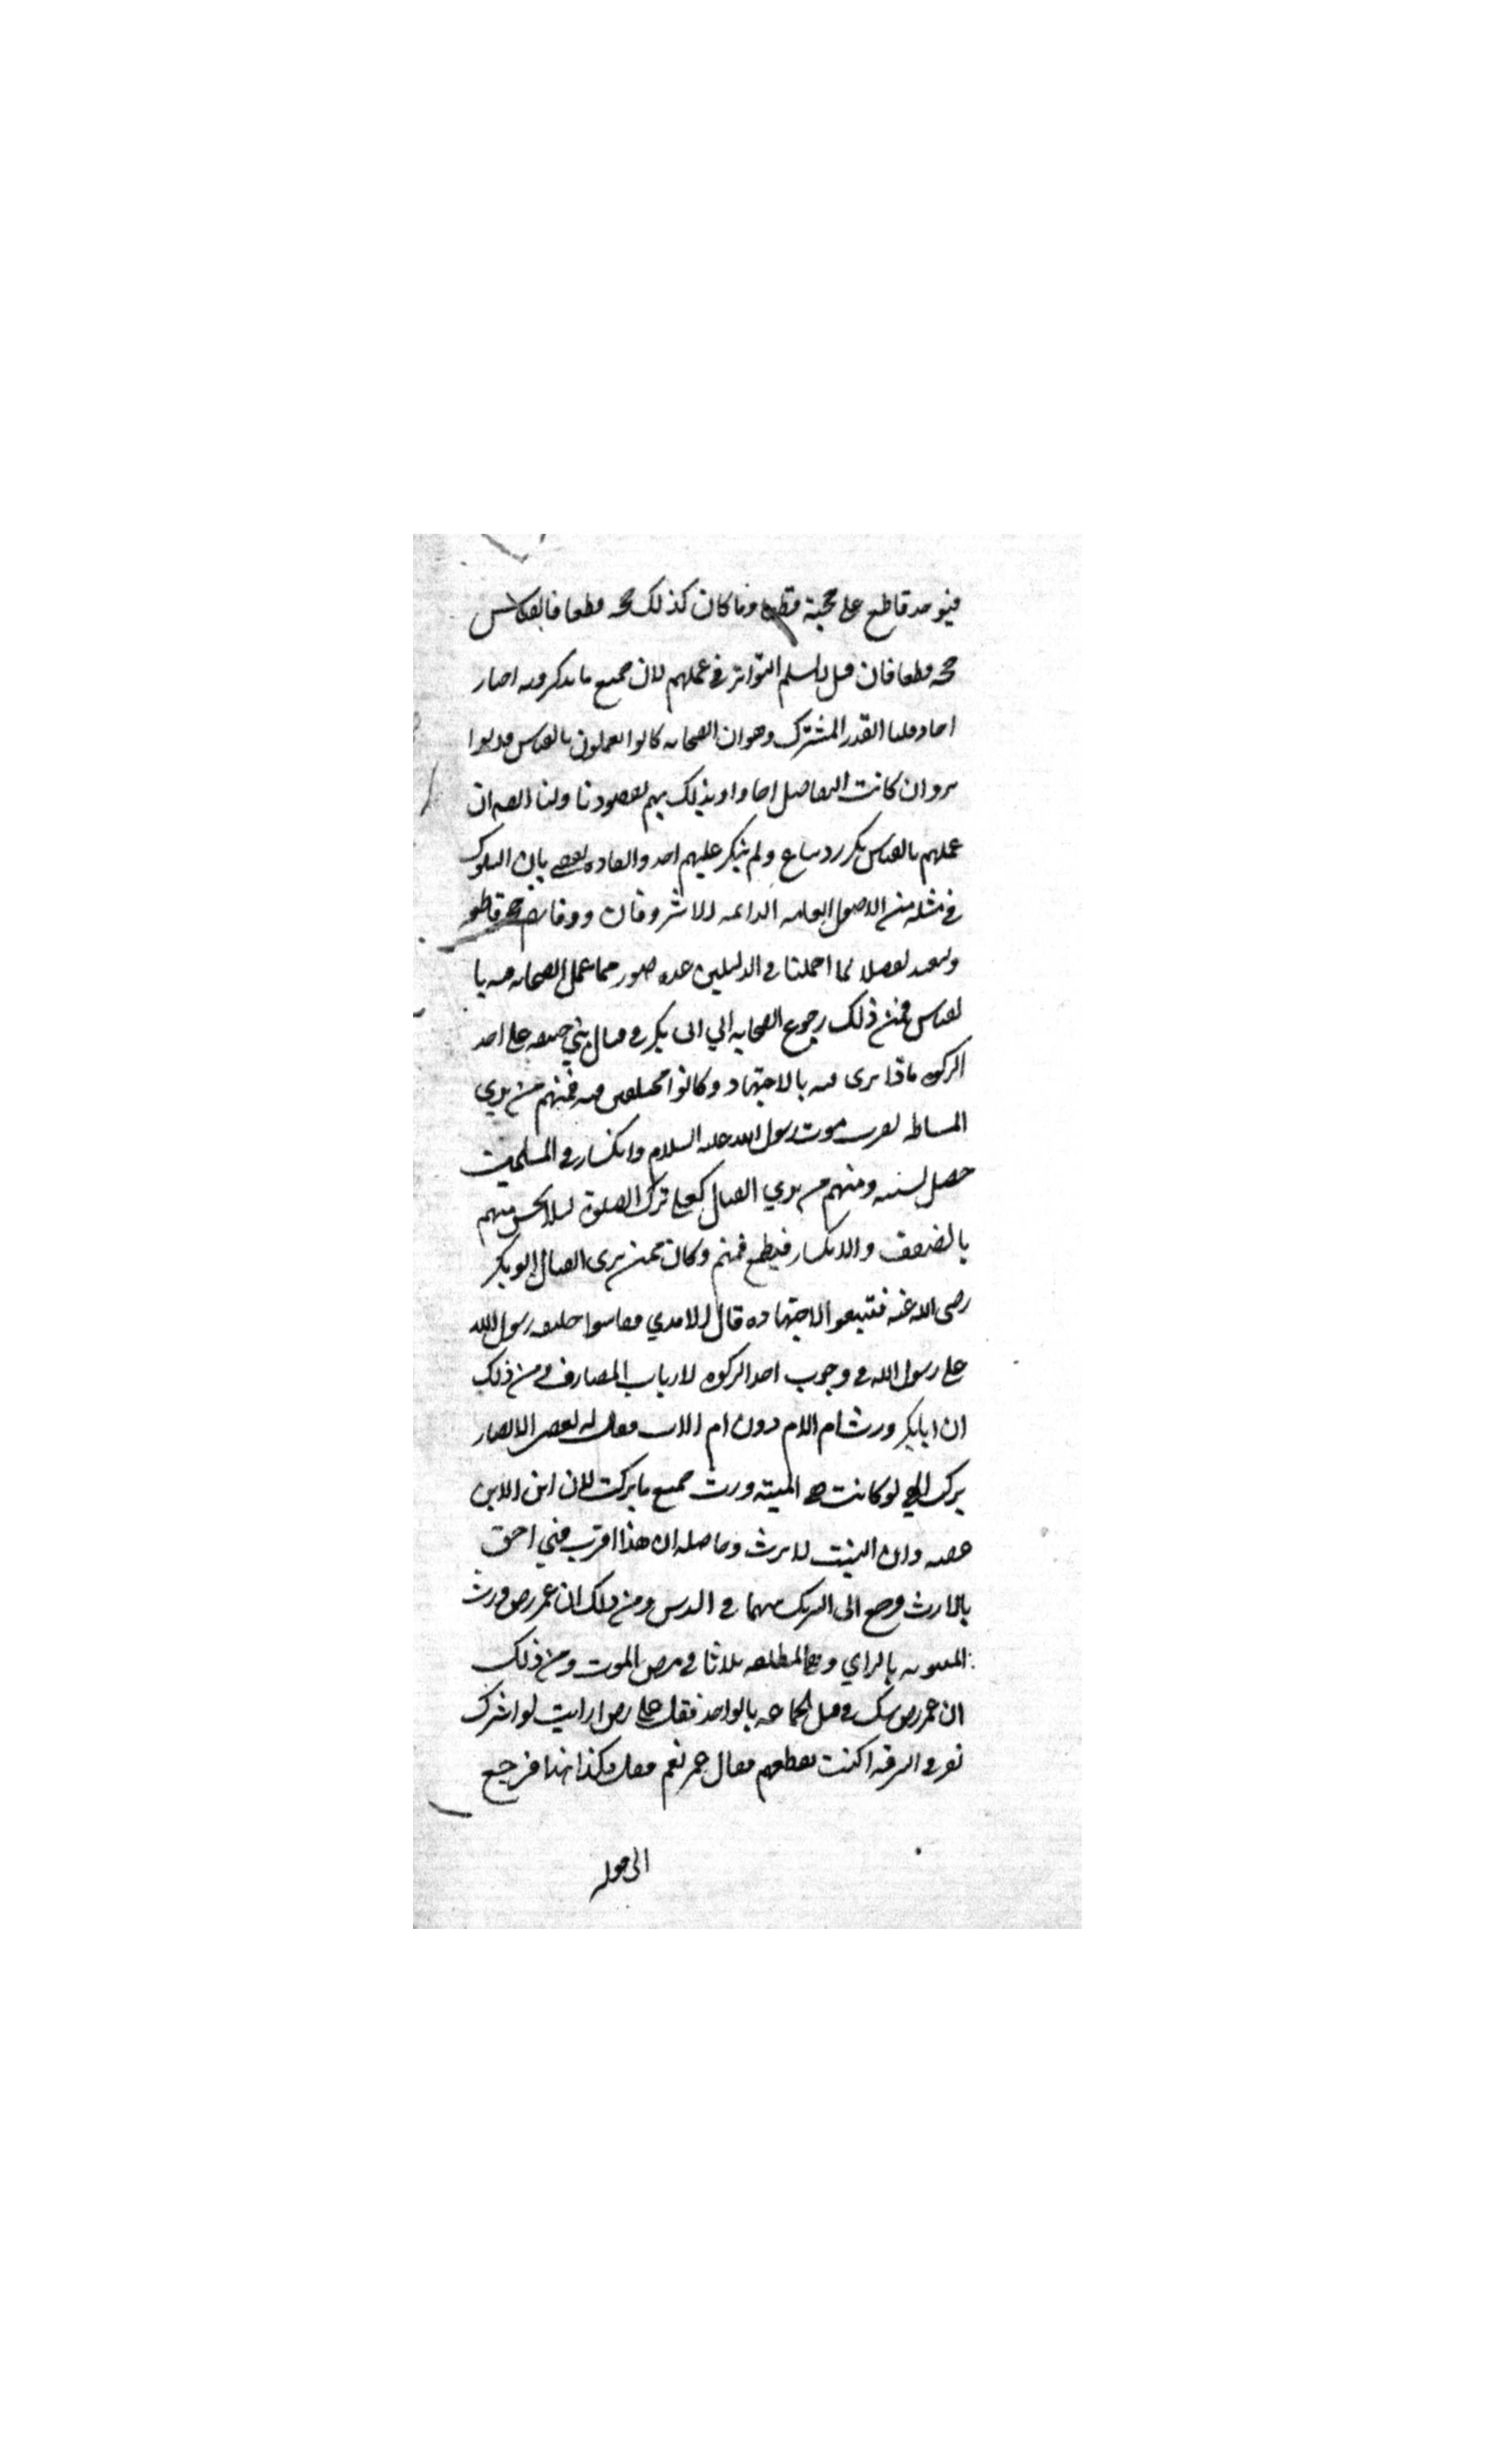 فيوجد قاطع على حجيته قطعا وما كان كذلك حجة قطعا فالقياس
حجة قطعا فان قيل لا نسلم التواتر في عملهم لان جميع ما تذكرونه اخبار
احاد قلنا القدر المشترك وهو ان الصحابة كانوا يعملون بالقياس قد تواتر
وان كانت التفاصيل احادا وبذلك يتم مقصودنا ولنا ايضا ان
عملهم بالقياس تكرر وشاع ولم ينكر عليهم احد والعادة تقضي بان السكوت
في مثله من الاصول العامة الدائمة الاثر وفاق ووفاقهم حجة قاطعة
ولنعد تفصيلا لما اجملنا في الدليلين عدة صور مما عمل الصحابة فيه با
لقياس فمن ذلك رجوع الصحابة الي ابى بكر في قتال بني حنيفة على اخذ
الزكوة ماذا يرى فيه بالاجتهاد وكانوا مختلفين فيه فمنهم من يري
المساهلة لقرب موت رسول الله عليه السلام وانكسار في المسلمين
حصل بسببه ومنهم من يري القتال كعلى ترك الصلوة لئلا يحس منهم
بالضعف والانكسار فيطمع فيهم وكان ممن يرى القتال ابو بكر
رضى الله عنه فتبعوا لاجتهاده قال الامدي فقاسوا خليفة رسول الله
على رسول الله في وجوب اخذ الزكوة لارباب المصارف ومن ذلك
ان ابا بكر ورث ام الام دون ام الاب فقال له بعض الانصار
تركت التي لو كانت هي الميتة ورث جميع ما تركت لان ابن الابن
عصبة وابن البنت لا يرث وحاصله ان هذا اقرب فهي احق
بالارث فرجع الى التشريك بينهما في السدس ومن ذلك ان عمر رض ورث
المبتوتة بالراي وهي المطلقة ثلاثا في مرض الموت ومن ذلك
ان عمر رض شك في قتل الجماعة بالواحد فقال على رض ارايت لو اشترك
نفر في السرقة اكنت تقطعهم فقال عمر نعم فقال فكذا هنا فرجع
الى قوله